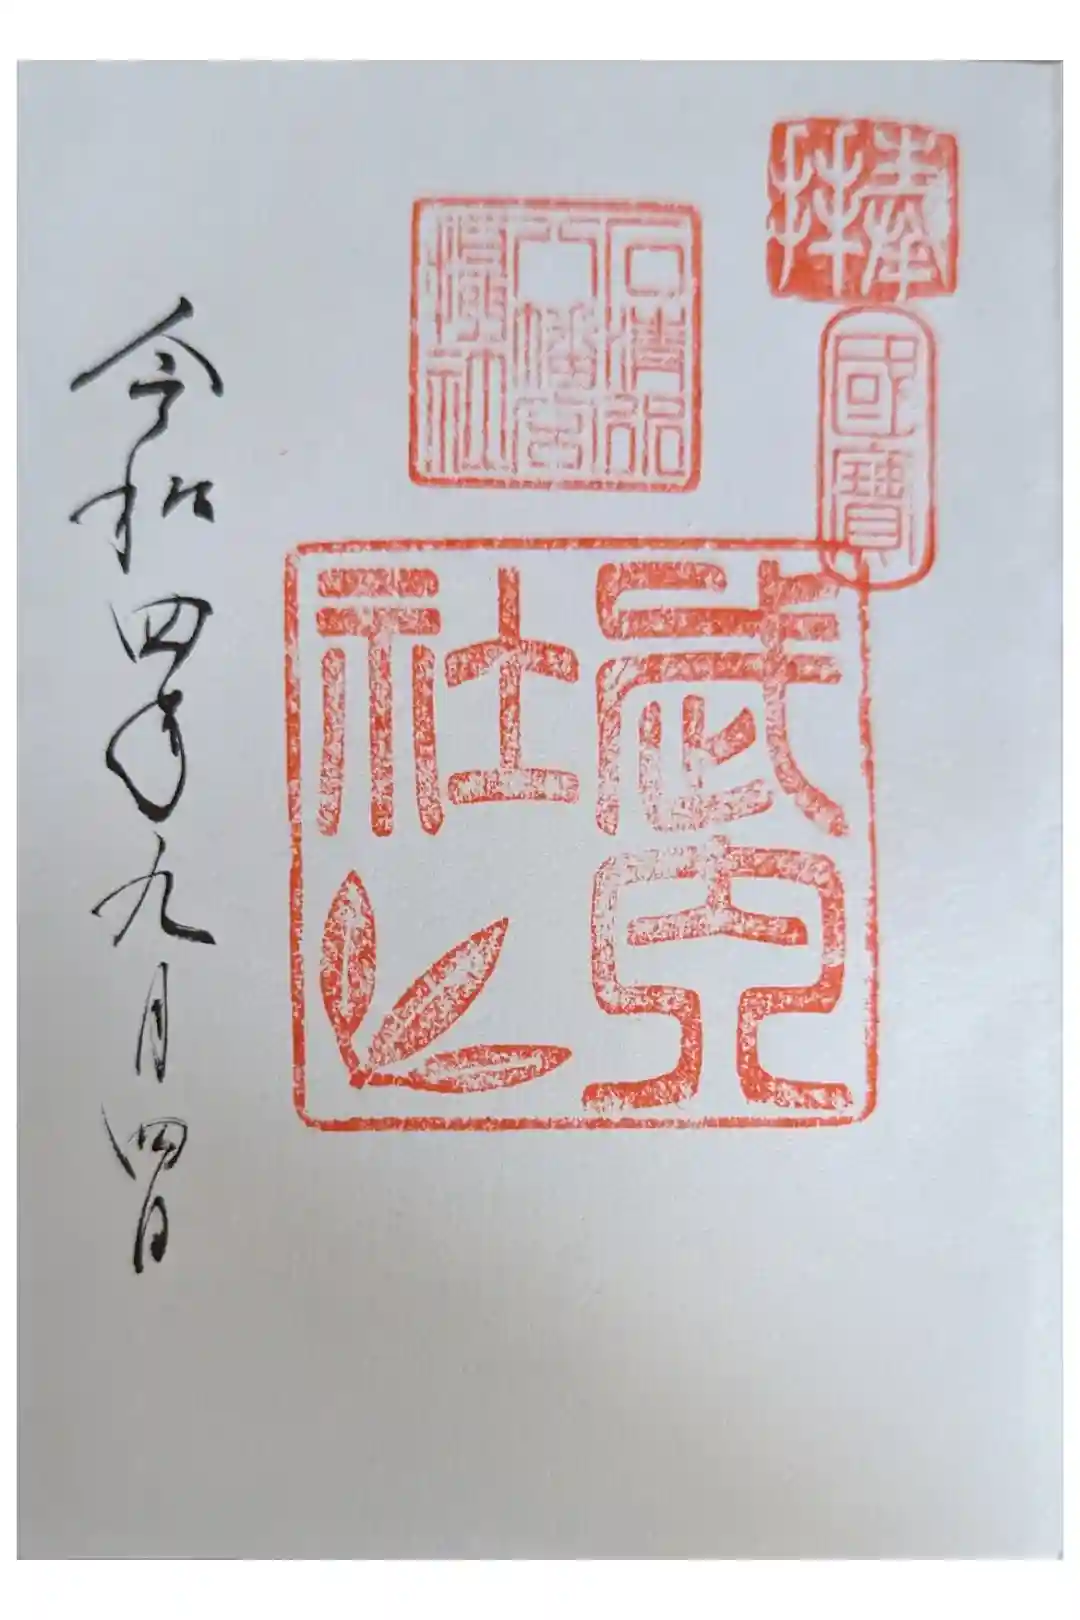 奉拝
國寶
石清水
八幡宮
攝社
武内
社
令和四年九月四日